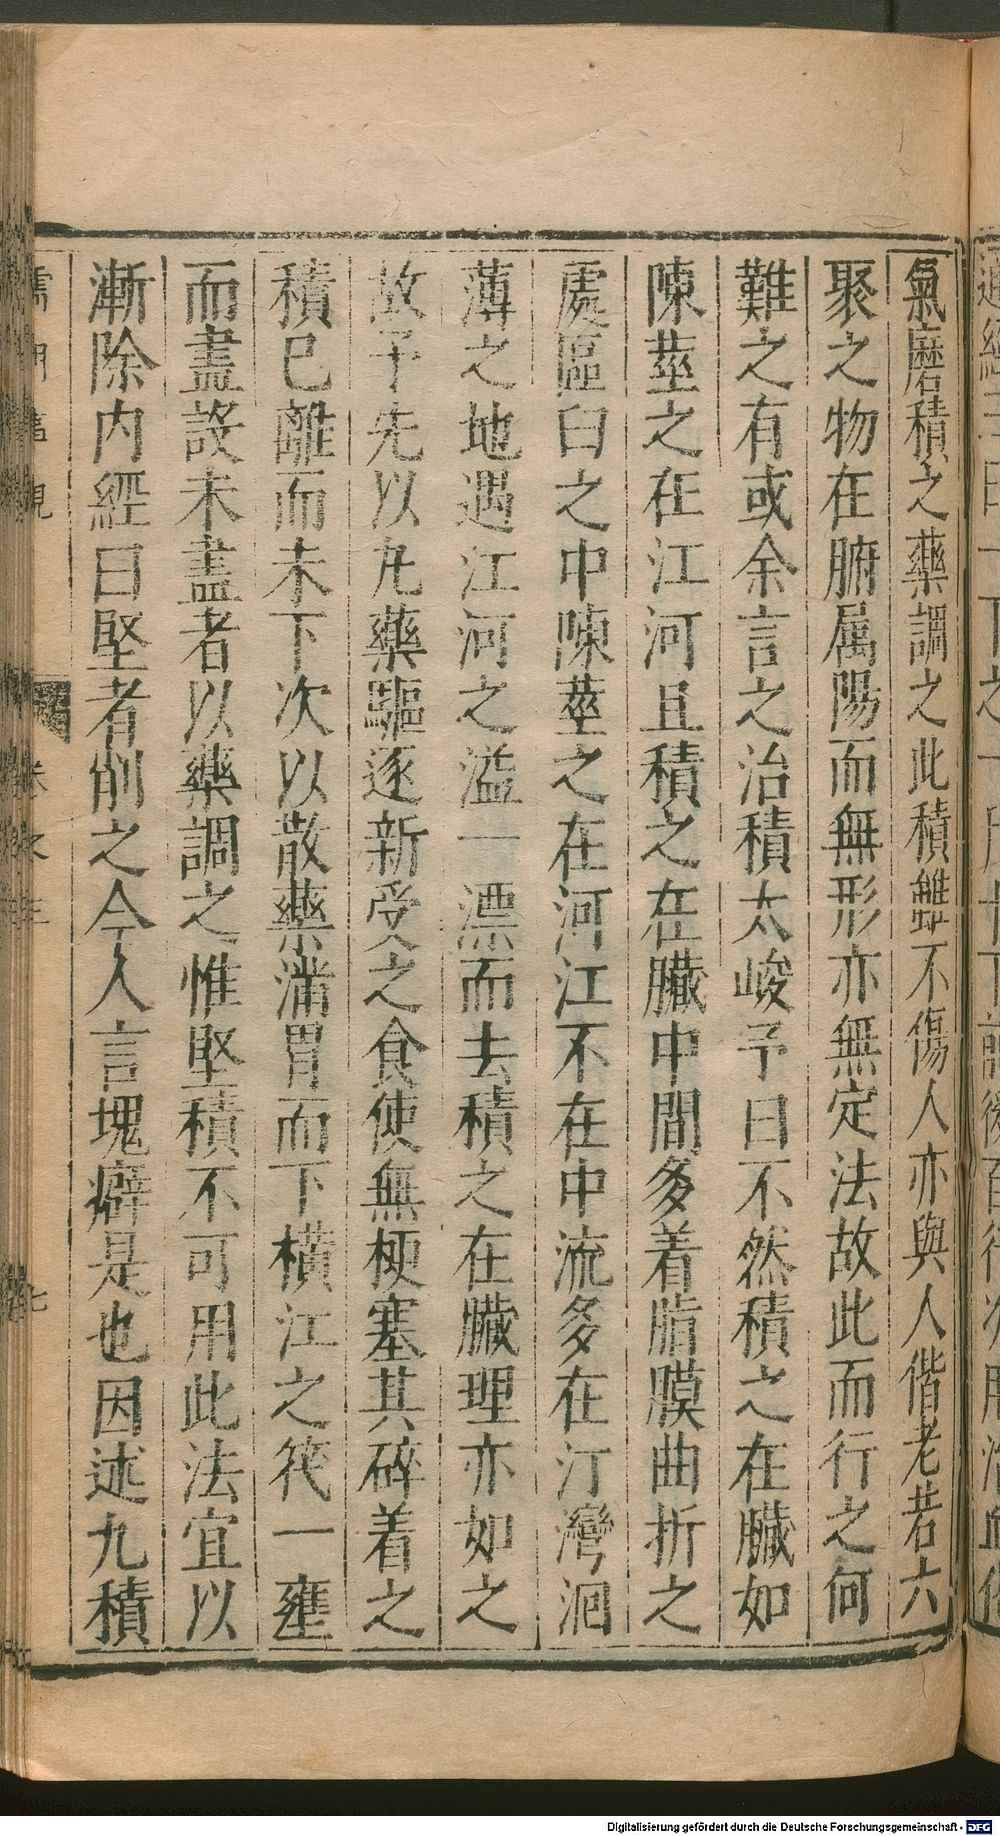 氣磨積之藥調之此積雖不傷人亦與人偕老若六
聚之物在腑属陽而無形亦無定法故此而行之何
難之有或余言之治積太峻予曰不然積之在臟如
陳莝之在江河且積之在臟中間多着脂膜曲折之
處區臼之中陳莝之在河江不在中流多在汀灣洄
薄之地遇江河之溢一漂而去積之在臟理亦如之
故予先以丸藥驅逐新受之食使無梗塞其碎着之
積已離而未下次以散藥滿胃而下横江之筏一壅
而盡設未盡者以藥調之惟堅積不可用此法宜以
漸除内經曰堅者削之今人言塊癖是也因述九積
卷之三
七
Digitalisierung gefördert durch die Deutsche Forschungsgemeinschaft - DFG